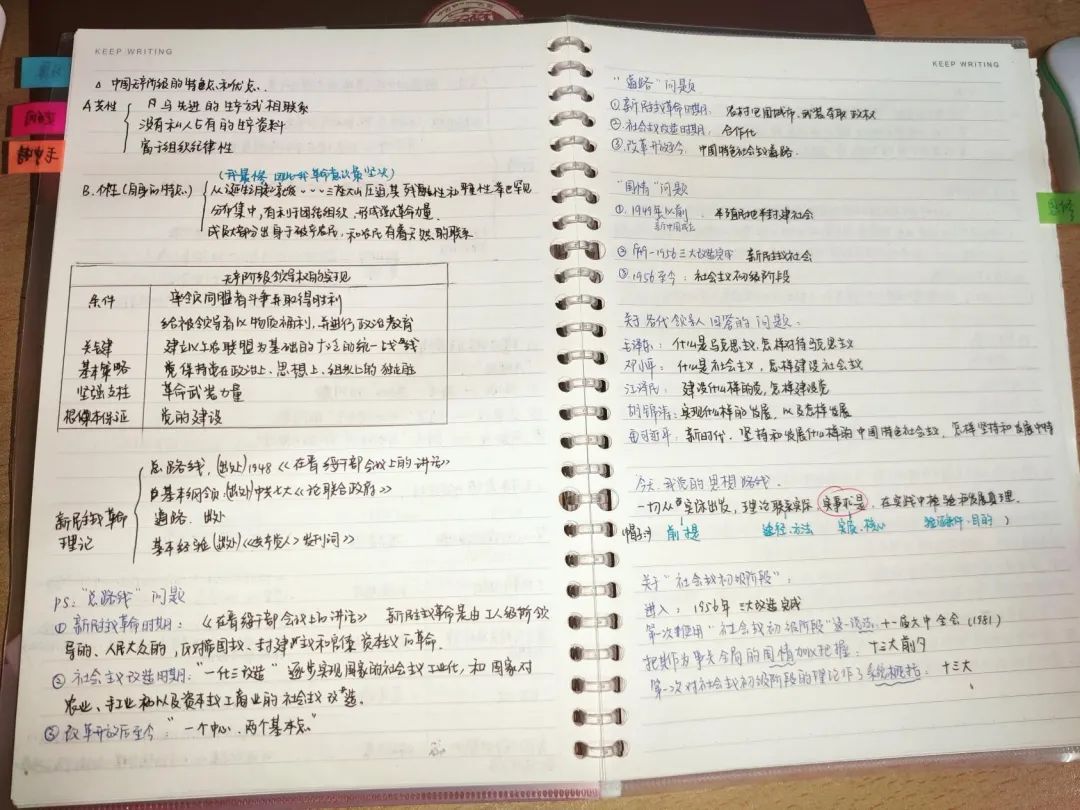 KEEP WRITING
△ 中国无产阶级的特点和优点.
A 共性
与先进的生产方式相联系
没有私人占有的生产资料
富于组织纪律性
(我最惨 因此我革命意识最坚决)
B. 个性(自身的特点)
从诞生之日起就受……三座大山压迫,其残酷性和 世界罕见
分布集中,有利于团结组织、形成强大革命力量.
成员大部分出身于破产农民,和农民有着天然的联系
无产阶级领导权的实现
条件 率领同盟者斗争并取得胜利
给被领导者以物质福利,并进行政治教育
关键 建立以工农联盟为基础的广泛的统一战线
基本策略 党保持党在政治上、思想上、组织上的独立性
坚强支柱 革命武装力量
根本保证 党的建设
新民主主义革命理论
总路线.(出处)1948《在晋绥干部会议上的讲话》
基本纲领.(出处)中共七大《论联合政府》
道路. 出处
基本经验(出处)《<共产党人>发刊词》
ps:"总路线"问题
① 新民主主义革命时期: 《在晋绥干部会议上的讲话》 新民主主义革命是由工人阶级领
导的、人民大众的,反对帝国主义、封建主义和官僚资本主义的革命.
② 社会主义改造时期:"一化三改造" 逐步实现国家的社会主义工业化,和国家对
农业、手工业和以及资本主义工商业的社会主义改造.
③ 改革开放后至今:"一个中心、两个基本点"
KEEP WRITING
"道路"问题
①新民主主义革命时期: 农村包围城市、武装夺取政权
②社会主义改造时期: 合作化
③.改革开放至今: 中国特色社会主义道路.
"国情"问题
①.1949年以前 : 半殖民地半封建社会
新中国成立
② 1949-1956三大改造完成 新民主主义社会
③ 1956至今:社会主义初级阶段
关于各代领导人回答的问题:
毛泽东: 什么是马克思主义.怎样对待马克思主义
邓小平: 什么是社会主义,怎样建设社会主义
江泽民: 建设什么样的党,怎样建设党
胡锦涛:实现什么样的发展,以及怎样发展
习近平:新时代.坚持和发展什么样的中国特色社会主义,怎样坚持和发展中特
今天.我党的思想路线.
一切从实际出发,理论联系实际 实事求是,在实践中检验和发展真理.
前提 途径.方法 实质.核心 验证条件.目的 )
关于"社会主义初级阶段":
进入: 1956年 三大改造完成
第一次使用"社会主义初级阶段"这一说法:十一届六中全会(1981)
把其作为事关全局的国情加以把握: 十三大前夕
第一次对社会主义初级阶段的理论作了系统概括: 十三大